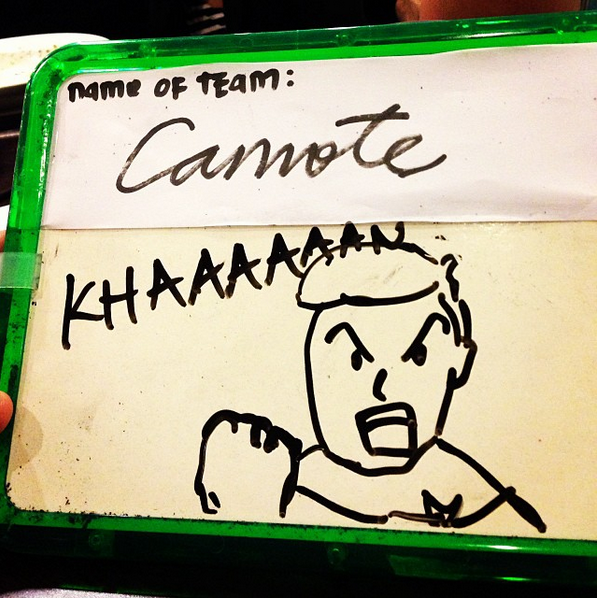 name of team:
Camote
KHAAAAAAN